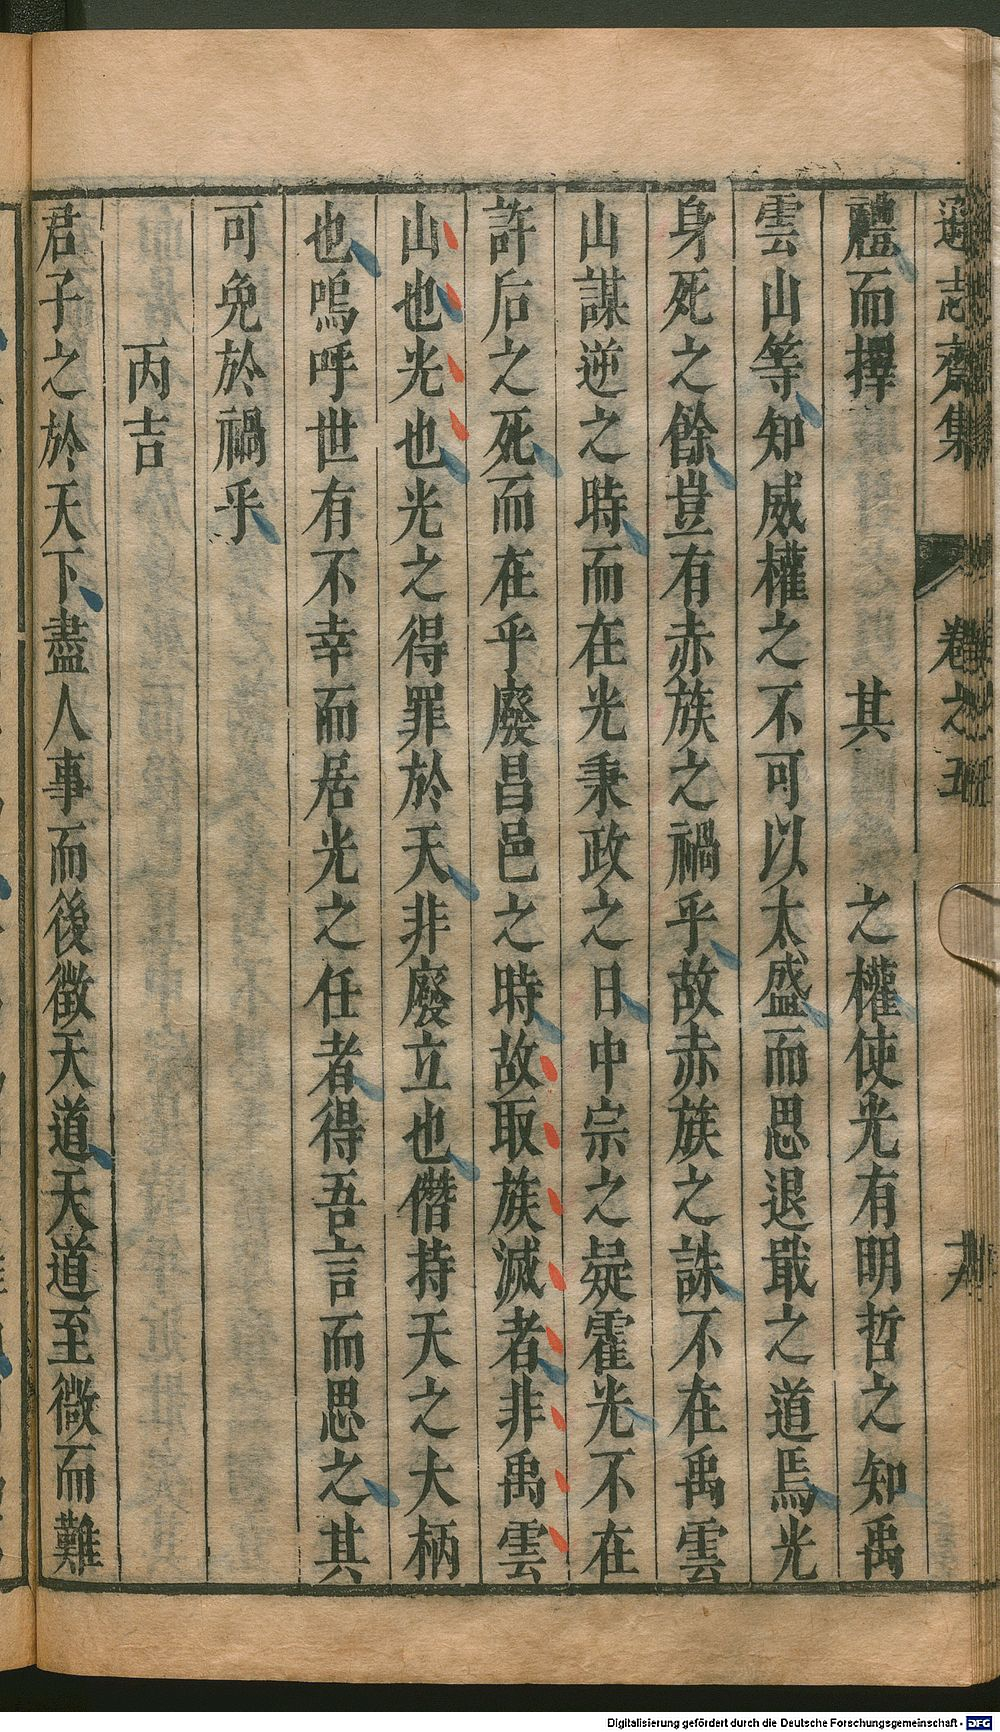 遜志齋集 卷之五
禮而擇 其 之權使光有明哲之知禹
雲山等知威權之不可以太盛而思退戢之道焉光
身死之餘豈有赤族之禍乎故赤族之誅不在禹雲
山謀逆之時而在光秉政之日中宗之疑霍光不在
許后之死而在乎廢昌邑之時故取族滅者非禹雲
山也光也光之得罪於天非廢立也僭持天之大柄
也嗚呼世有不幸而居光之任者得吾言而思之其
可免於禍乎
丙吉
君子之於天下盡人事而後徵天道天道至微而難
Digitalisierung gefördert durch die Deutsche Forschungsgemeinschaft - DFG